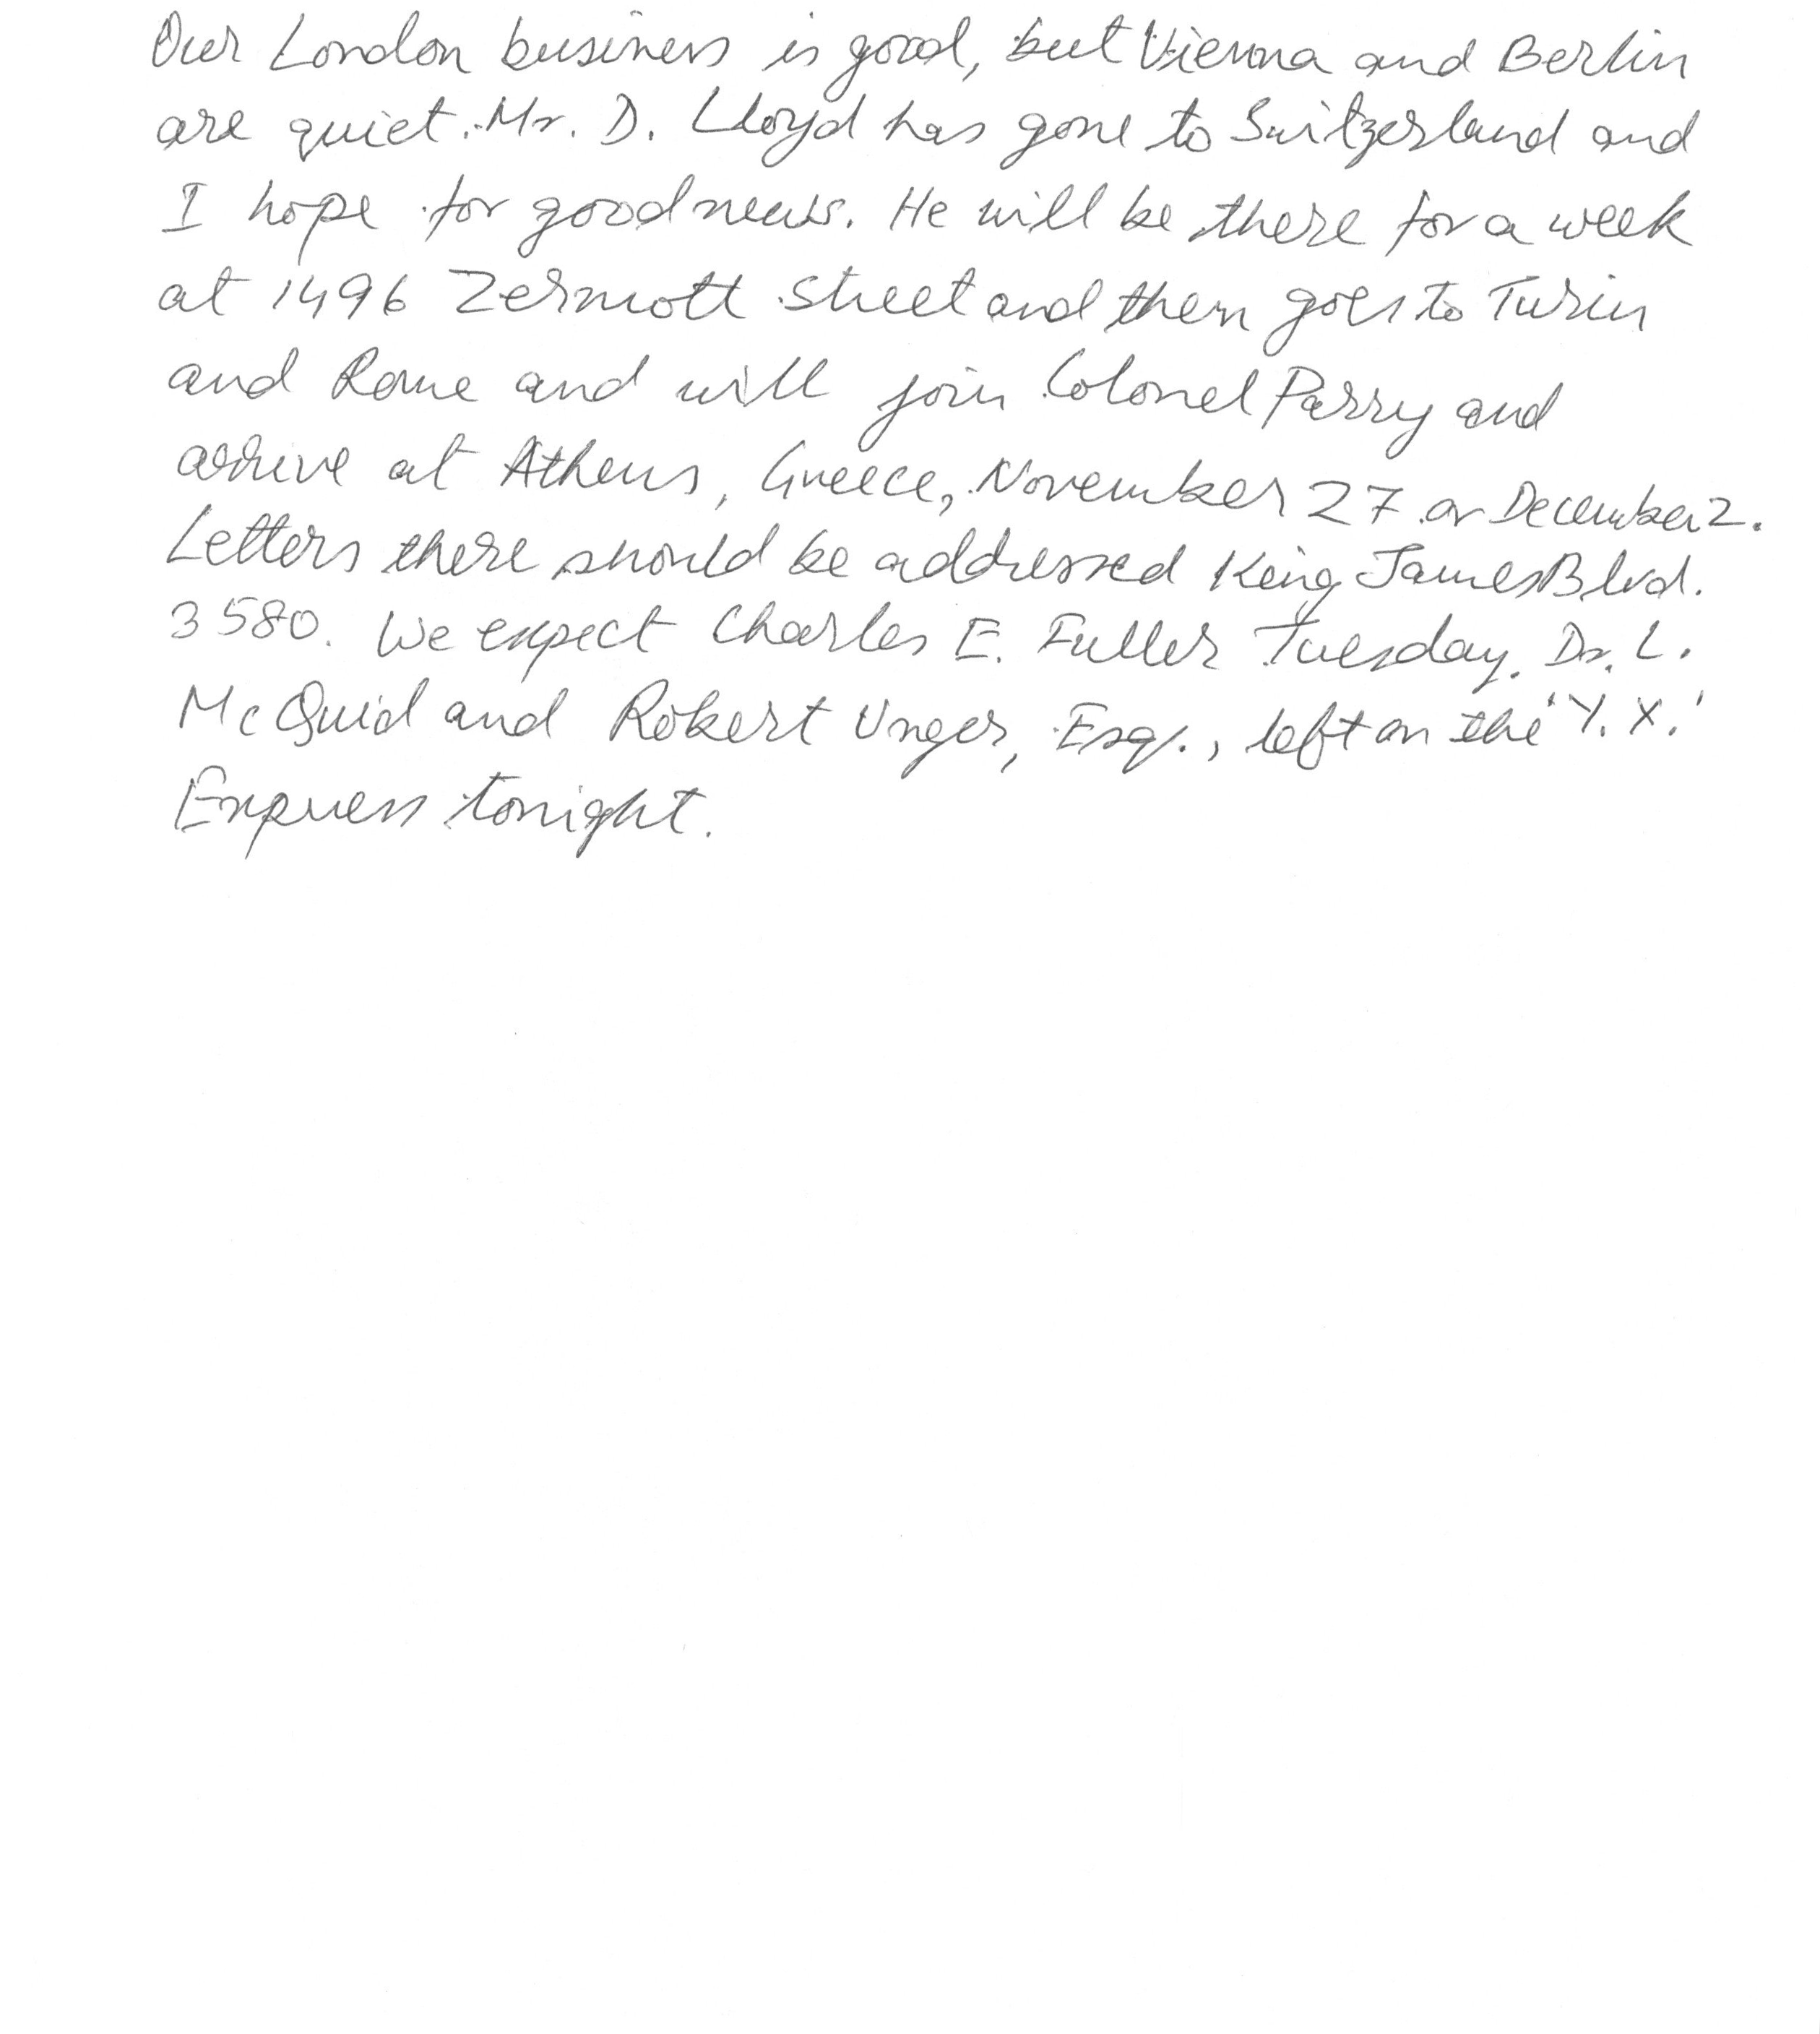 Our London business is good, but Vienna and Berlin
are quiet. Mr. D. Lloyd has gone to Switzerland and
I hope for good news. He will be there for a week
at 1496 Zermott street and then goes to Turin
and Rome and will join Colonel Parry and
arrive at Athens, Greece, November 27 or December 2.
Letters there should be addressed King James Blvd.
3580. We expect Charles E. Fuller Tuesday. Dr. L.
McQuid and Robert Unger, Esq., left on the 'Y. X.'
Express tonight.